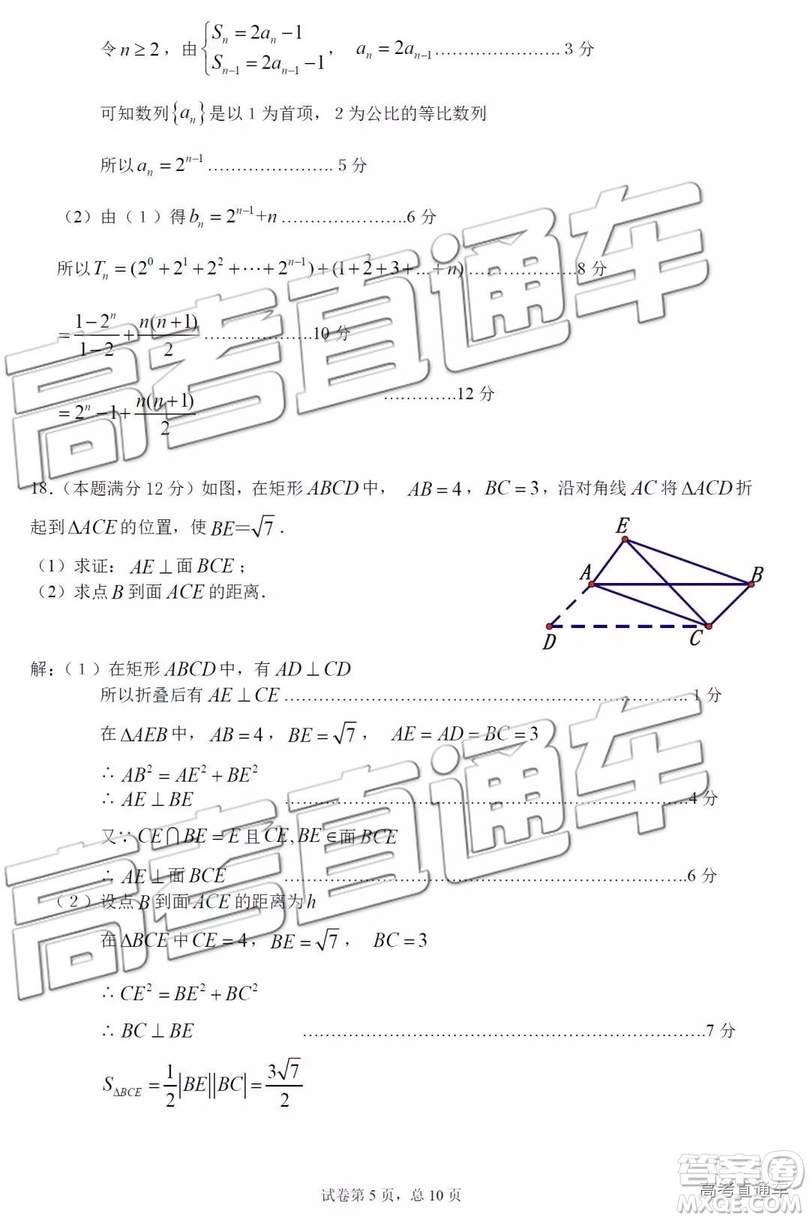 令 n≥2，由{S_n=2a_n−1，a_n=2a_{n−1}……………………3分
S_{n−1}=2a_{n−1}−1
可知数列{a_n}是以1为首项，2为公比的等比数列
所以 a_n=2^{n−1}……………………5分
（2）由（1）得 b_n=2^{n−1}+n……………………6分
所以 T_n=(2^0+2^1+2^2+⋯+2^{n−1})+(1+2+3+…+n)…………………8分
=\frac{1−2^n}{1−2}+\frac{n(n+1)}{2}…………………10分
=2^n−1+\frac{n(n+1)}{2} …………12分
18.（本题满分12分）如图，在矩形ABCD中，AB=4，BC=3，沿对角线AC将ΔACD折
起到ΔACE的位置，使BE=√7．
（1）求证：AE⊥面BCE；
（2）求点B到面ACE的距离．
E
A
B
D
C
解：（1）在矩形ABCD中，有AD⊥CD
所以折叠后有AE⊥CE……………………1分
在ΔAEB中，AB=4，BE=√7，AE=AD=BC=3
∴AB²=AE²+BE²
∴AE⊥BE ……………………4分
又∵CE⋂BE=E且CE,BE∈面BCE
∴AE⊥面BCE……………………6分
（2）设点B到面ACE的距离为h
在ΔBCE中CE=4，BE=√7，BC=3
∴CE²=BE²+BC²
∴BC⊥BE ……………………7分
S_{ΔBCE}=\frac{1}{2}|BE||BC|=\frac{3√7}{2}
试卷第5页，总10页
高考直通车
高考直通车
答案圈
高考直通车
MXQE.COM